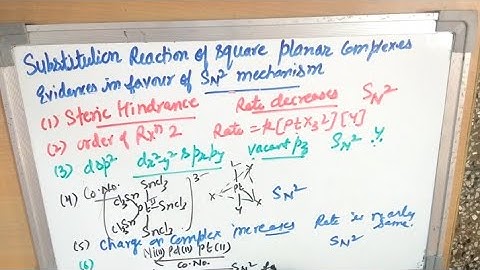 Substitution Reaction of square planar Complexes
Evidences in favour of SN² mechanism
(1) Steric Hindrance Rate decreases SN²
(2) order of Rxⁿ 2 Rate = k[PtX₃L][Y]
(3) dsp² dx²-y² s px py vacant pz SN² Y
(4) Co.No. SnCl₃ 3- L
Cl₃Sn Pt SnCl₃ X Pt X SN²
Cl₃Sn SnCl₃ X Y
(5) Charge on complex increases Rate is nearly same.
Ni(II) Pd(II) Pt(II) SN²
(6) Co.No. SN²